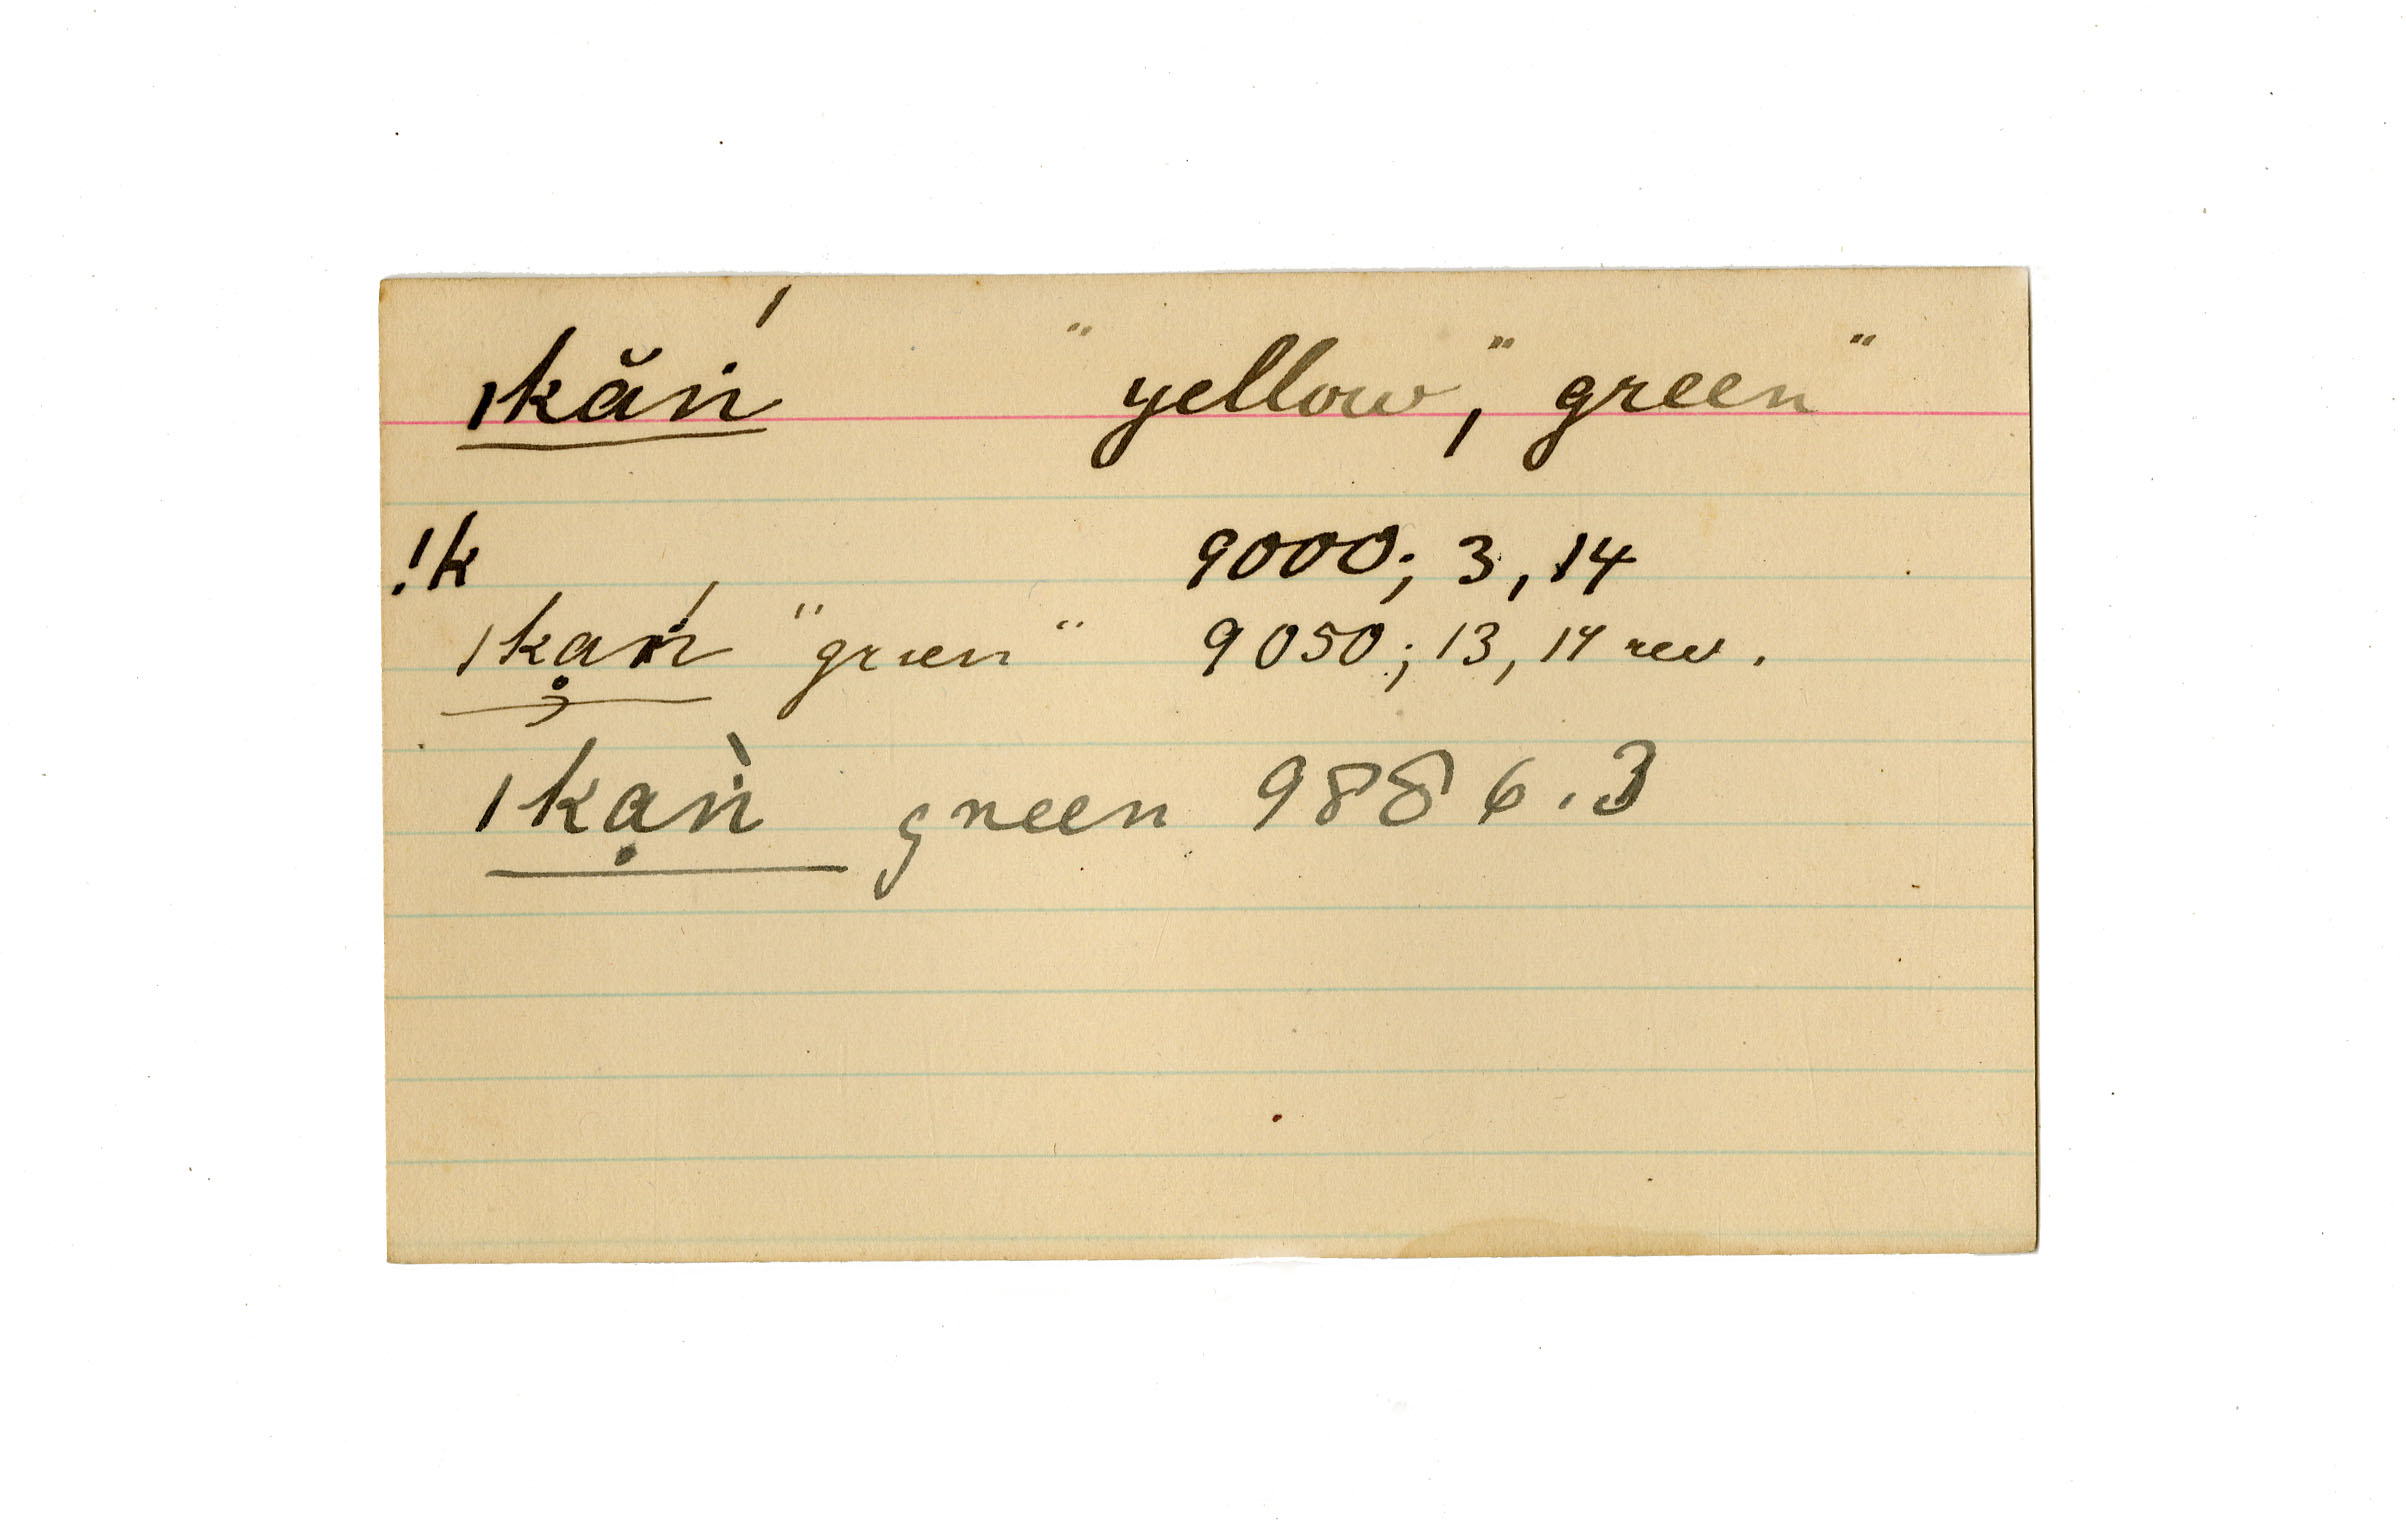 ǀkăṅ́ "yellow," "green"
!k 9000; 3, 14
ǀkạṅ́ "green" 9050; 13, 14 rev.
ǀkạṅ̀ green 9886.3